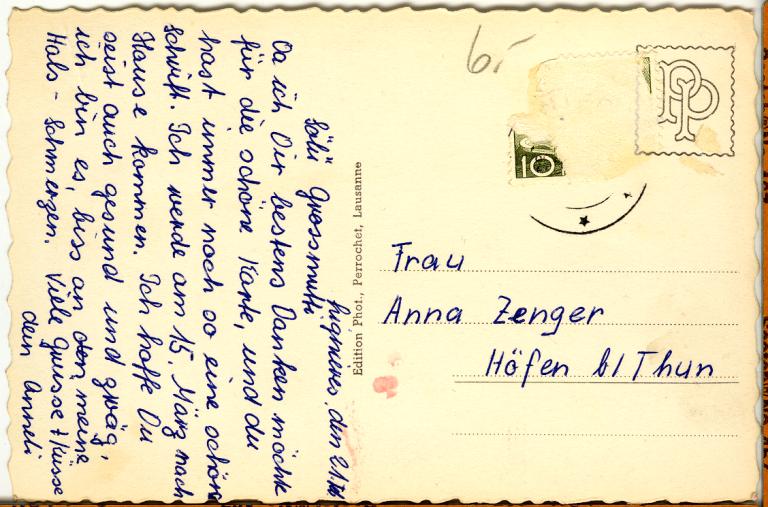 Pugnines, den 21. II.
Sälü Grossmutti
Da ich Dir bestens Danken möchte
für die schöne Karte, und du
hast immer noch so eine schöne
Schrift. Ich werde am 15. März nach
Hause kommen. Ich hoffe Du
seist auch gesund und zwäg,
ich bin es, biss an den meine
Hals-Schmerzen. Viele Grüsse + Küsse
dein Anneli
Edition Phot., Perrochet, Lausanne
6.-
10
PP
Frau
Anna Zenger
Höfen b/Thun